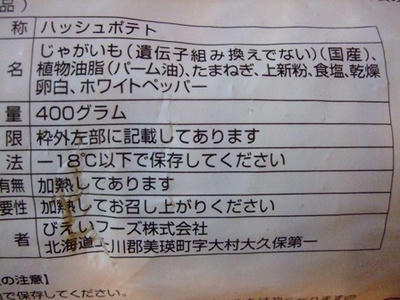 品）
称 ハッシュポテト
じゃがいも（遺伝子組み換えでない）（国産）、
名 植物油脂（パーム油）、たまねぎ、上新粉、食塩、乾燥
卵白、ホワイトペッパー
量 400グラム
限 枠外左部に記載してあります
法 －18℃以下で保存してください
有無 加熱してあります
要性 加熱してお召し上がりください
者 びえいフーズ株式会社
北海道上川郡美瑛町字大村大久保第一
の注意】
で保存してください